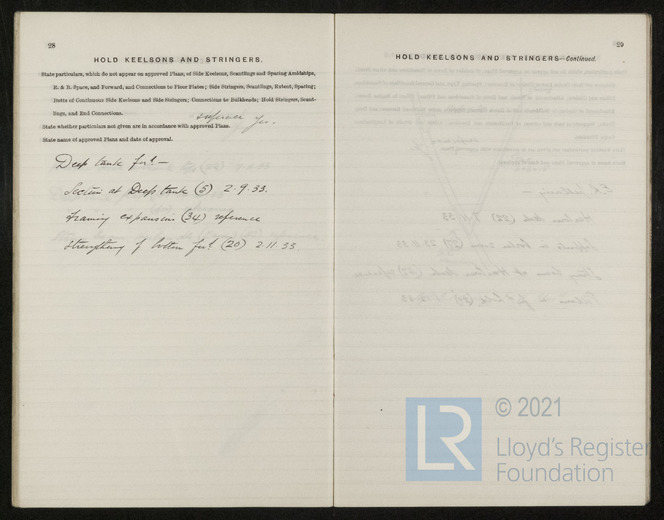 28
HOLD KEELSONS AND STRINGERS.
State particulars, which do not appear on approved Plans, of Side Keelsons, Scantlings and Spacing Amidships,
E. & B. Space, and Forward, and Connections to Floor Plates; Side Stringers, Scantlings, Extent, Spacing;
Butts of Continuous Side Keelsons and Side Stringers; Connections to Bulkheads; Hold Stringers, Scant-
lings, and End Connections.
State whether particulars not given are in accordance with approved Plans.
Yes.
State name of approved Plans and date of approval.
Deep tank ford —
Section at Deep tank (5) 2.9.33.
Framing expansion (34) reference
Strengthening of bottom ford (20) 2.11.33.
29
HOLD KEELSONS AND STRINGERS—Continued.
LR
© 2021
Lloyd's Register
Foundation